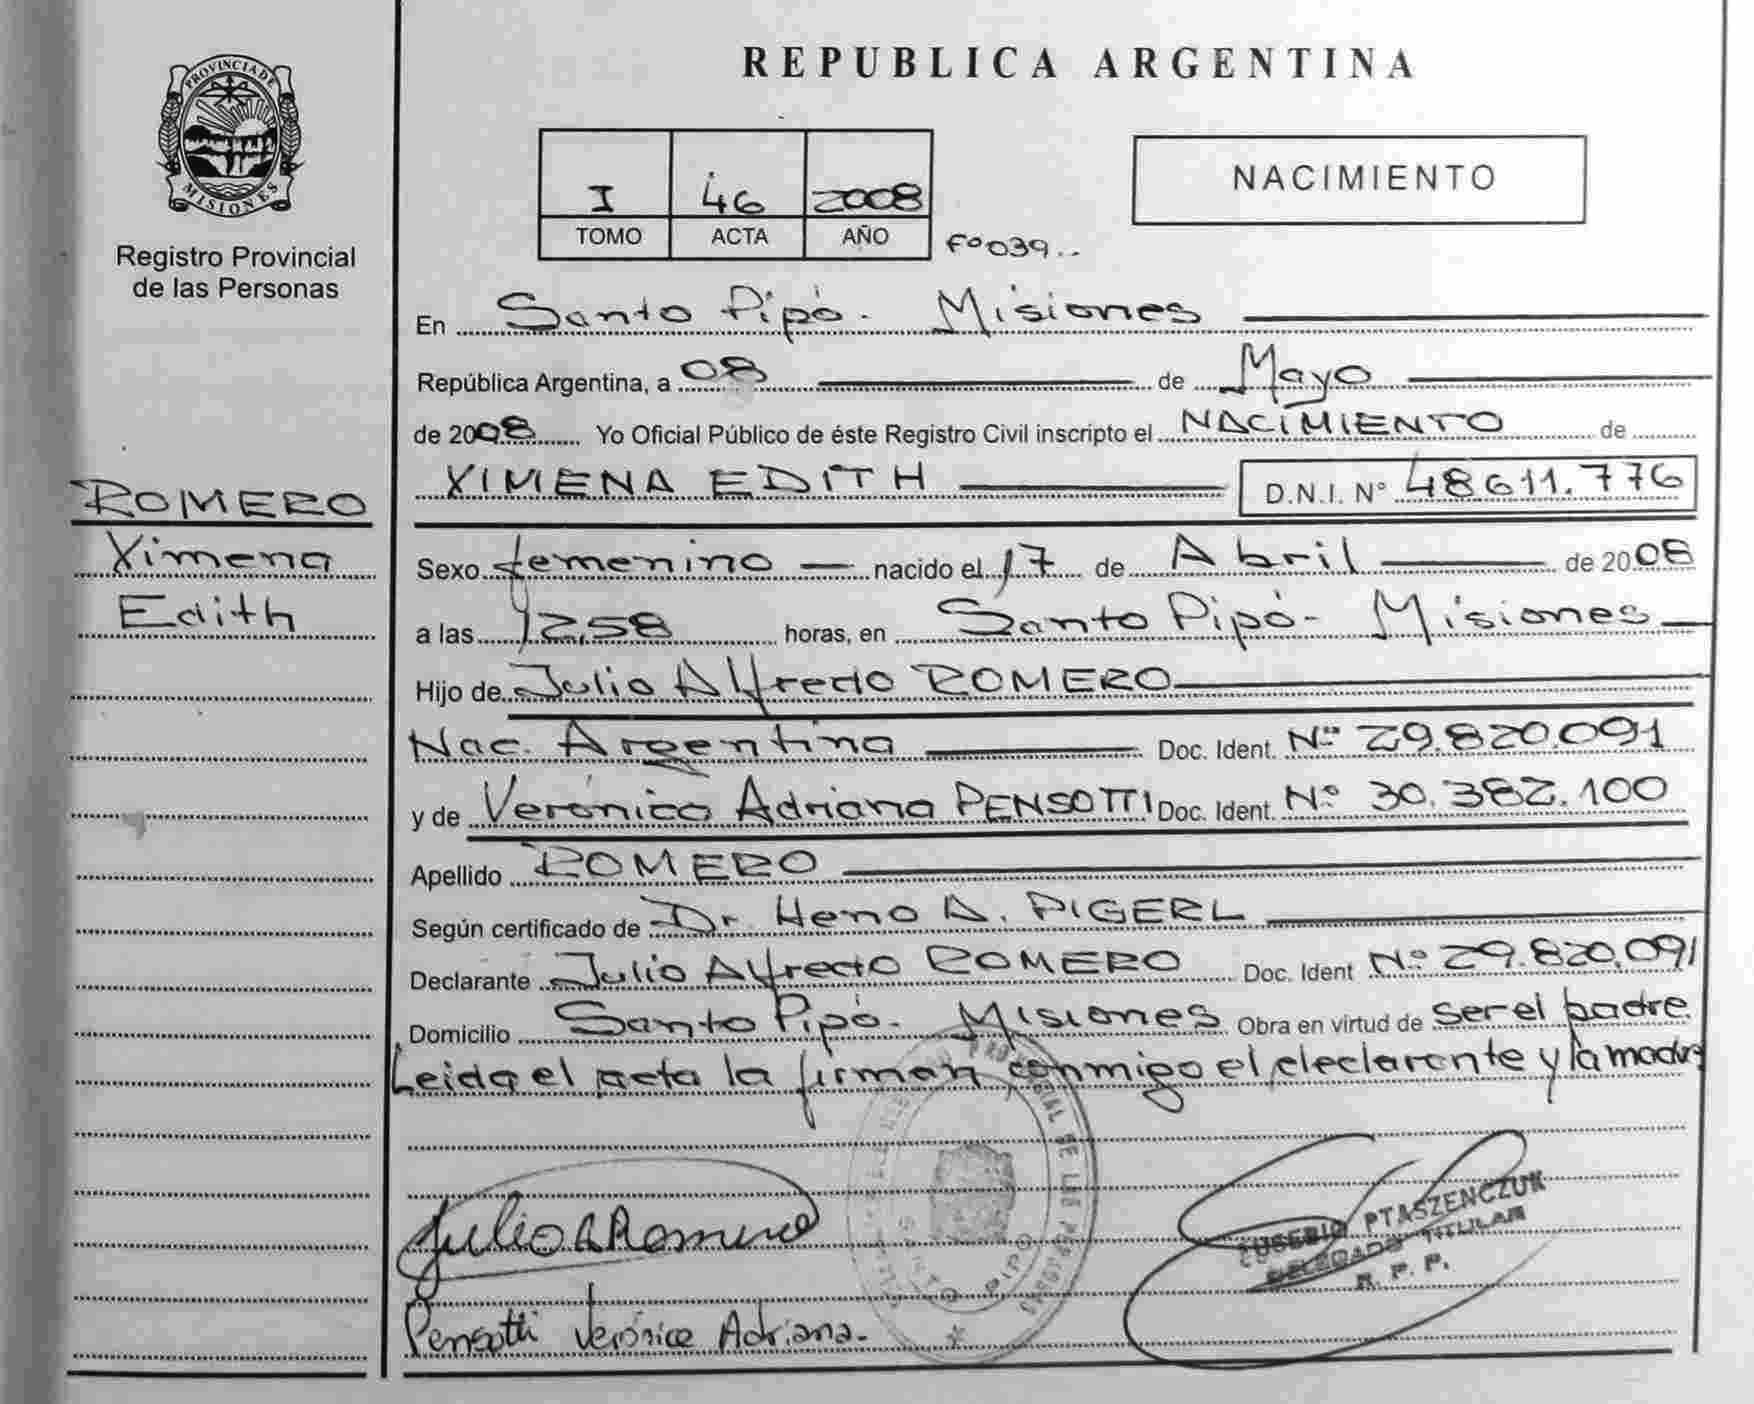 REPUBLICA ARGENTINA
PROVINCIA DE
MISIONES
Registro Provincial
de las Personas
I 46 2008
TOMO ACTA AÑO
Fº 039..
NACIMIENTO
En Santo Pipó. Misiones
República Argentina, a 08 de Mayo
de 2008 Yo Oficial Público de éste Registro Civil inscripto el NACIMIENTO de
XIMENA EDITH D.N.I. Nº 48611.776
ROMERO
Ximena
Edith
Sexo femenino nacido el 17 de Abril de 2008
a las 12,58 horas, en Santo Pipó - Misiones
Hijo de Julio Alfredo ROMERO
Nac. Argentina Doc. Ident. Nº 29.820.091
y de Verónica Adriana PENSOTTI Doc. Ident. Nº 30.382.100
Apellido ROMERO
Según certificado de Dr. Heno A. PIGERL
Declarante Julio Alfredo ROMERO Doc. Ident Nº 29.820.091
Domicilio Santo Pipó. Misiones Obra en virtud de ser el padre.
Leida el acta la firman conmigo el declarante y la madre
SANTO PIPO
Julio A Romero
EUSEBIO PTASZENCZUK
DELEGADO TITULAR
R. P. P.
Pensotti Verónica Adriana.